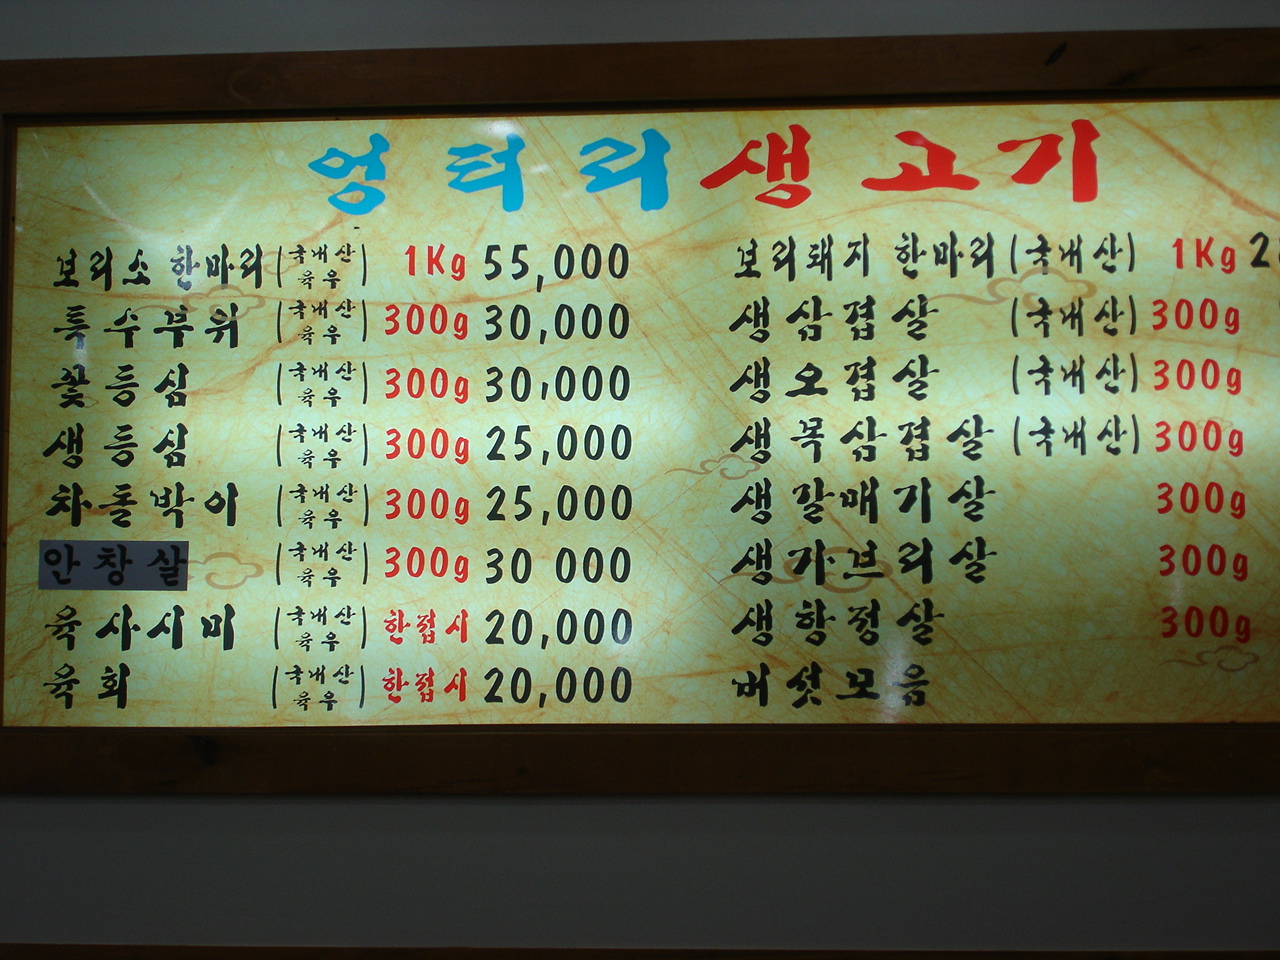 엉터리생고기
보리소 한마리 (국내산 육우) 1Kg 55,000
특수부위 (국내산 육우) 300g 30,000
꽃등심 (국내산 육우) 300g 30,000
생등심 (국내산 육우) 300g 25,000
차돌박이 (국내산 육우) 300g 25,000
안창살 (국내산 육우) 300g 30 000
육사시미 (국내산 육우) 한접시 20,000
육회 (국내산 육우) 한접시 20,000
보리돼지 한마리 (국내산) 1Kg 2
생삼겹살 (국내산) 300g
생오겹살 (국내산) 300g
생목삼겹살 (국내산) 300g
생갈매기살 300g
생가브리살 300g
생항정살 300g
버섯모음